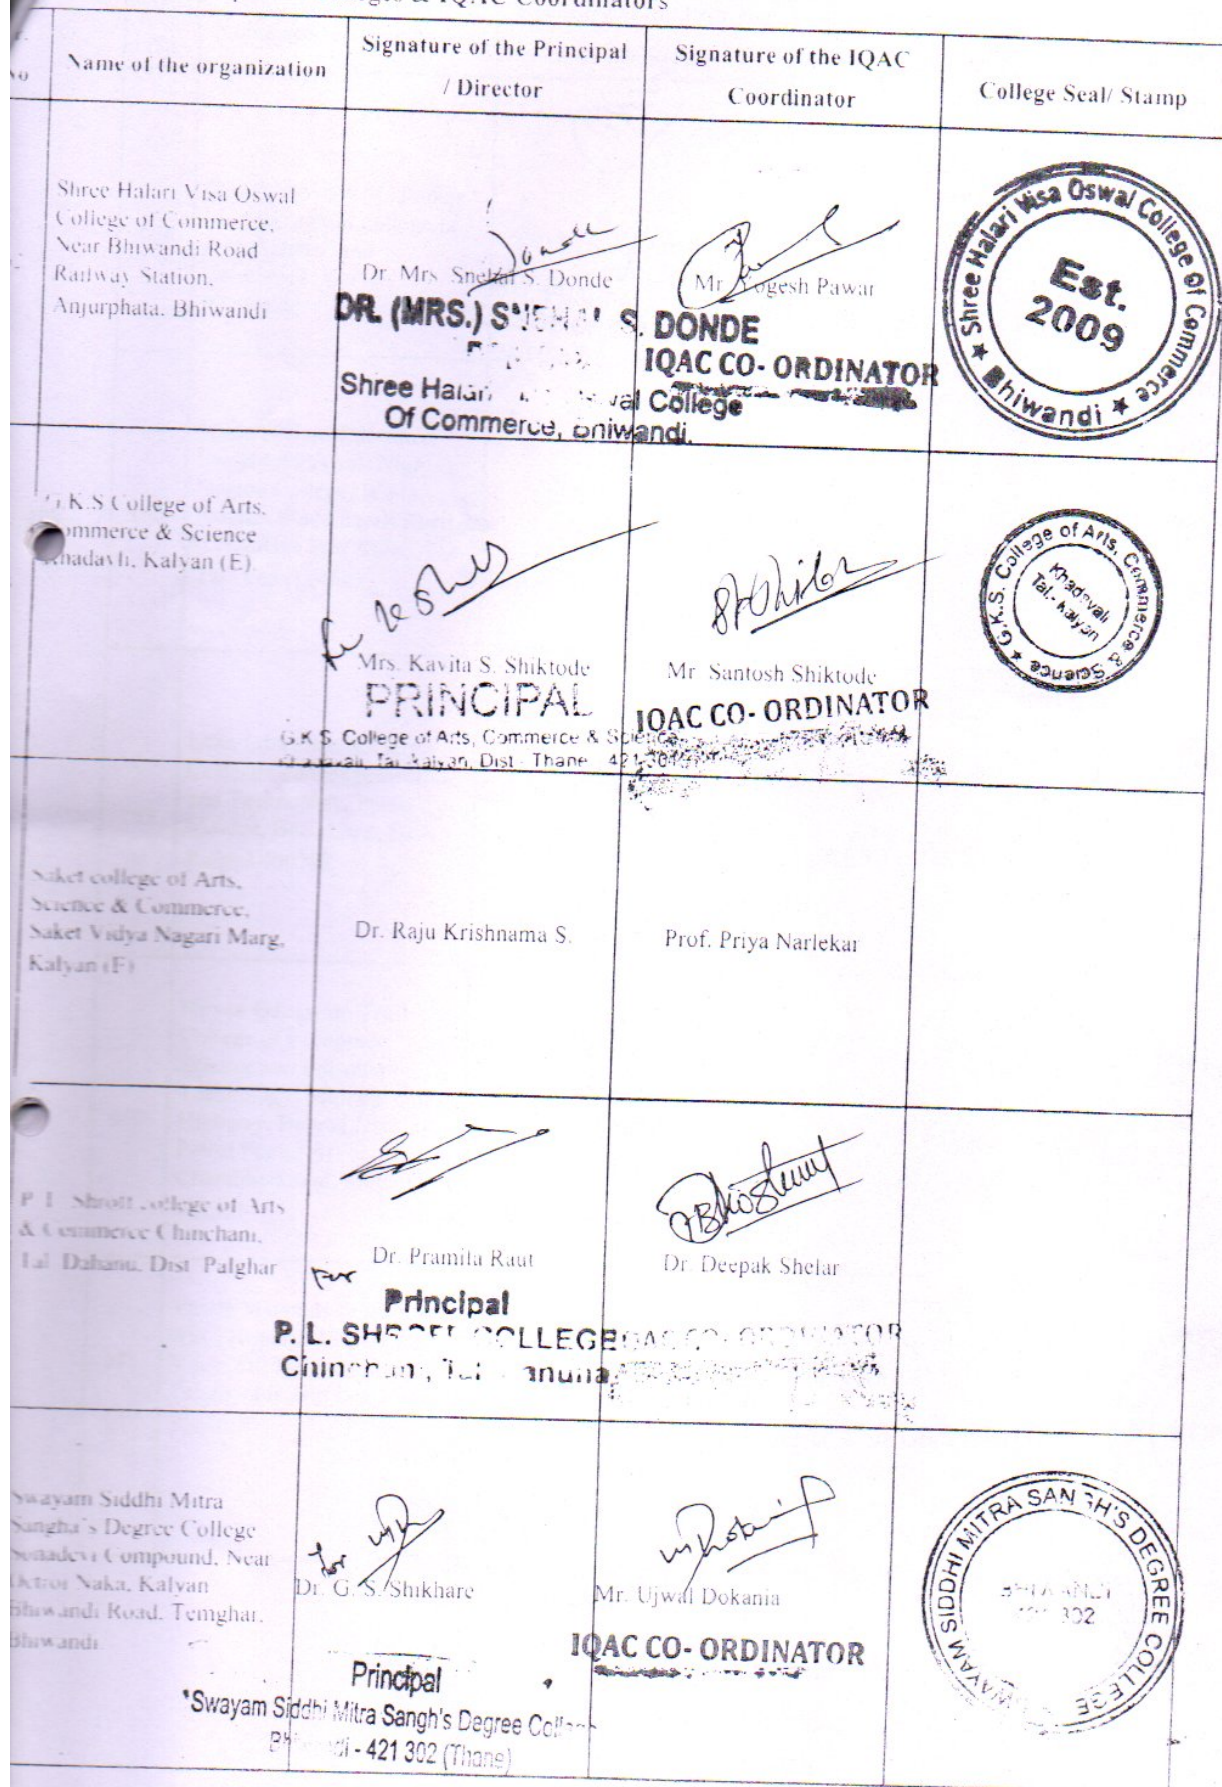 & IQAC Coordinators
Name of the organization
Signature of the Principal
/ Director
Signature of the IQAC
Coordinator
College Seal/ Stamp
Shree Halari Visa Oswal
College of Commerce,
Near Bhiwandi Road
Railway Station,
Anjurphata, Bhiwandi
Donde
Dr. Mrs. Snehal S. Donde
DR. (MRS.) SNEHAL S. DONDE
Shree Halari Oswal College
Of Commerce, Bhiwandi.
Mr. Yogesh Pawar
IQAC CO-ORDINATOR
★ Shree Halari Visa Oswal College Of Commerce ★
Bhiwandi
Est.
2009
G.K.S College of Arts,
Commerce & Science
Khadavli, Kalyan (E)
Mrs. Kavita S. Shiktode
PRINCIPAL
G.K.S. College of Arts, Commerce & Science
Tal-Kalyan, Dist - Thane 421301
Mr Santosh Shiktode
IQAC CO-ORDINATOR
★ G.K.S. College of Arts, Commerce & Science
Khadavali
Tal.- Kalyan
Saket college of Arts,
Science & Commerce,
Saket Vidya Nagari Marg,
Kalyan (E)
Dr. Raju Krishnama S.
Prof. Priya Narlekar
P. L. Shroff College of Arts
& Commerce Chinchani,
Tal Dahanu, Dist Palghar
Dr. Pramila Raut
For
Principal
P. L. SHROFF COLLEGE
Dr. Deepak Shelar
IQAC CO-ORDINATOR
Swayam Siddhi Mitra
Sangha's Degree College
Sonadevi Compound, Near
Octroi Naka, Kalyan
Bhiwandi Road, Temghar,
Bhiwandi
for
Dr. G. S. Shikhare
Principal
*Swayam Siddhi Mitra Sangh's Degree College
Bhiwandi - 421 302 (Thane)
Mr. Ujwal Dokania
IQAC CO-ORDINATOR
SWAYAM SIDDHI MITRA SANGH'S DEGREE COLLEGE
BHIWANDI
421 302